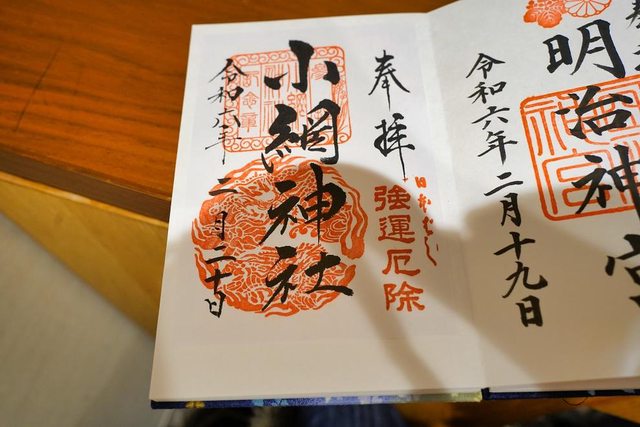 奉拝
明治神宮
令和六年二月十九日
奉拝
強運厄除
小網神社
令和六年二月二十日